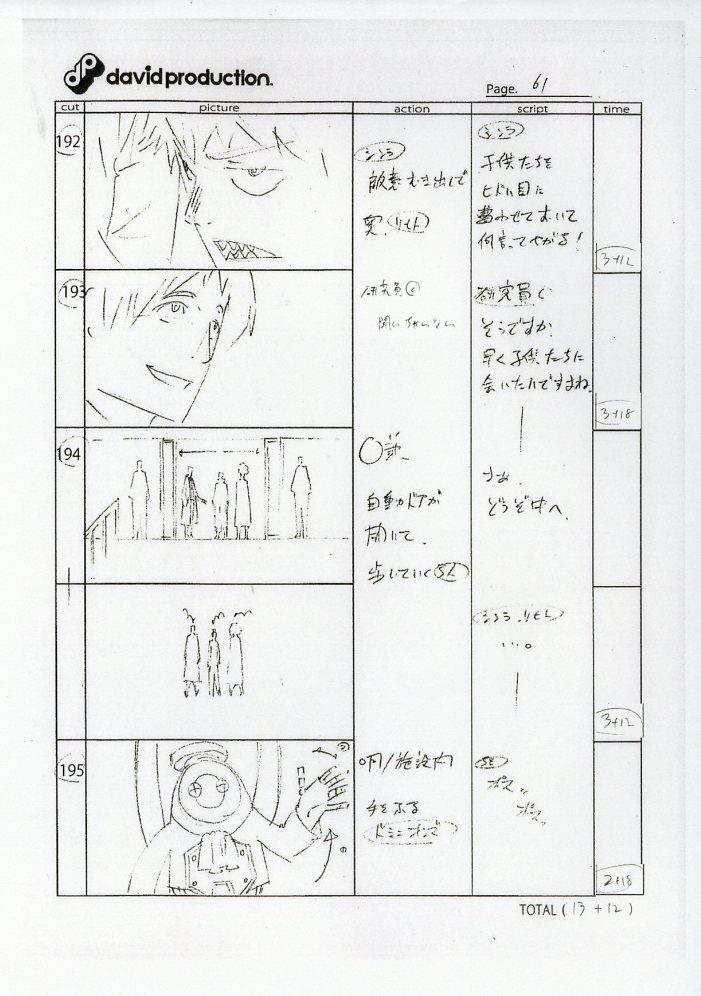 dp davidproduction.
Page. 61
cut picture action script time
192
シンラ
敵意むき出しで
シンラ
子供たちを
ヒドい目に
あわせておいて
何言ってやがる！
3+12
193
研究員C
聞いちゃいない
研究員C
そうですか
早く子供たちに
会いたいですよね。
3+18
194
自動ドアが
開いて、
歩いていく
さぁ、
どうぞ中へ。
…。
3+12
195
施設内
手をふる
SE
ポスッ
ポスッ
2+18
TOTAL (13 + 12)